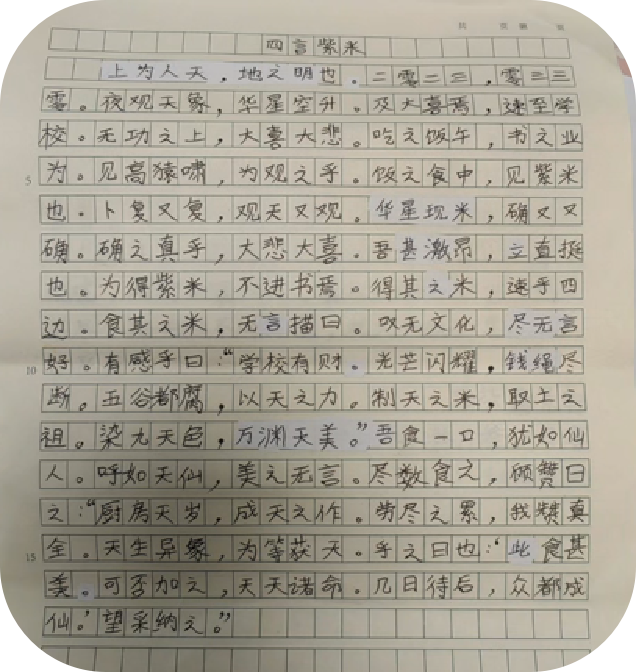 四言紫米
上为人天，地之明也。二零二三，零三三
零。夜观天象，华星空升。及大喜焉，速至学
校。无功之上，大喜大悲。吃之饭午，书之业
为。见高猿啸，为观之乎。饭之食中，见紫米
也。卜复又复，观天又观。华星现米，确又又
确。确之真乎，大悲大喜。吾甚激昂，立直挺
也。为得紫米，不进书焉。得其之米，速乎四
边。食其之米，无言描曰。叹无文化，尽无言
好。有感乎曰：“学校有财。光芒闪耀，钱绳尽
断。五谷都腐，以天之力。制天之米，取土之
祖。染九天色，万渊天美。”吾食一口，犹如仙
人。呼如天仙，美之无言。尽数食之，顾赞曰
之：“厨房天岁，成天之作。劳尽之累，我赞真
全。天生异象，为等获天。乎之曰也：‘此食甚
美。可否加之，天天诸命。几日待后，众都成
仙。’望采纳之。”
5
10
15